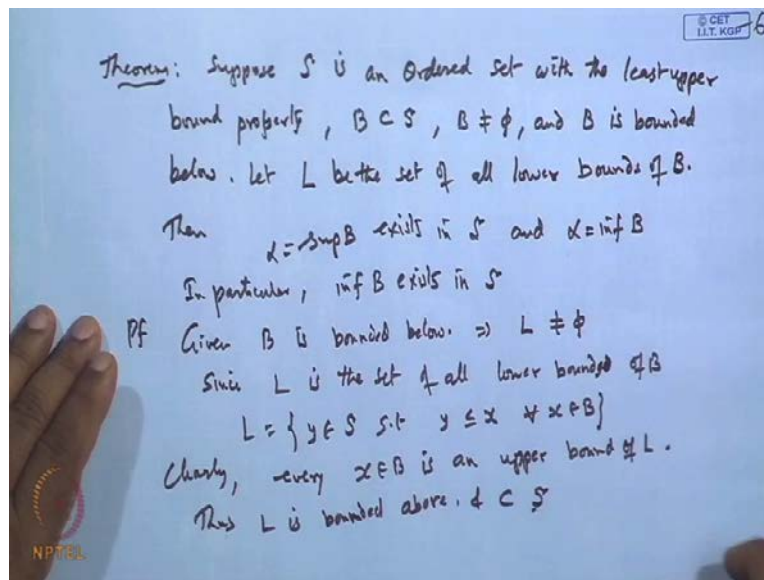 © CET
I.I.T. KGP
6
Theorem: Suppose S is an Ordered set with the least upper
bound property, B ⊂ S, B ≠ ϕ, and B is bounded
below. Let L be the set of all lower bounds of B.
Then α = sup B exists in S and α = inf B
In particular, inf B exists in S
Pf Given B is bounded below. ⇒ L ≠ ϕ
Since L is the set of all lower bounded of B
L = { y ∈ S s.t y ≤ x ∀ x ∈ B }
Clearly, every x ∈ B is an upper bound of L.
Thus L is bounded above. & ⊂ S
NPTEL